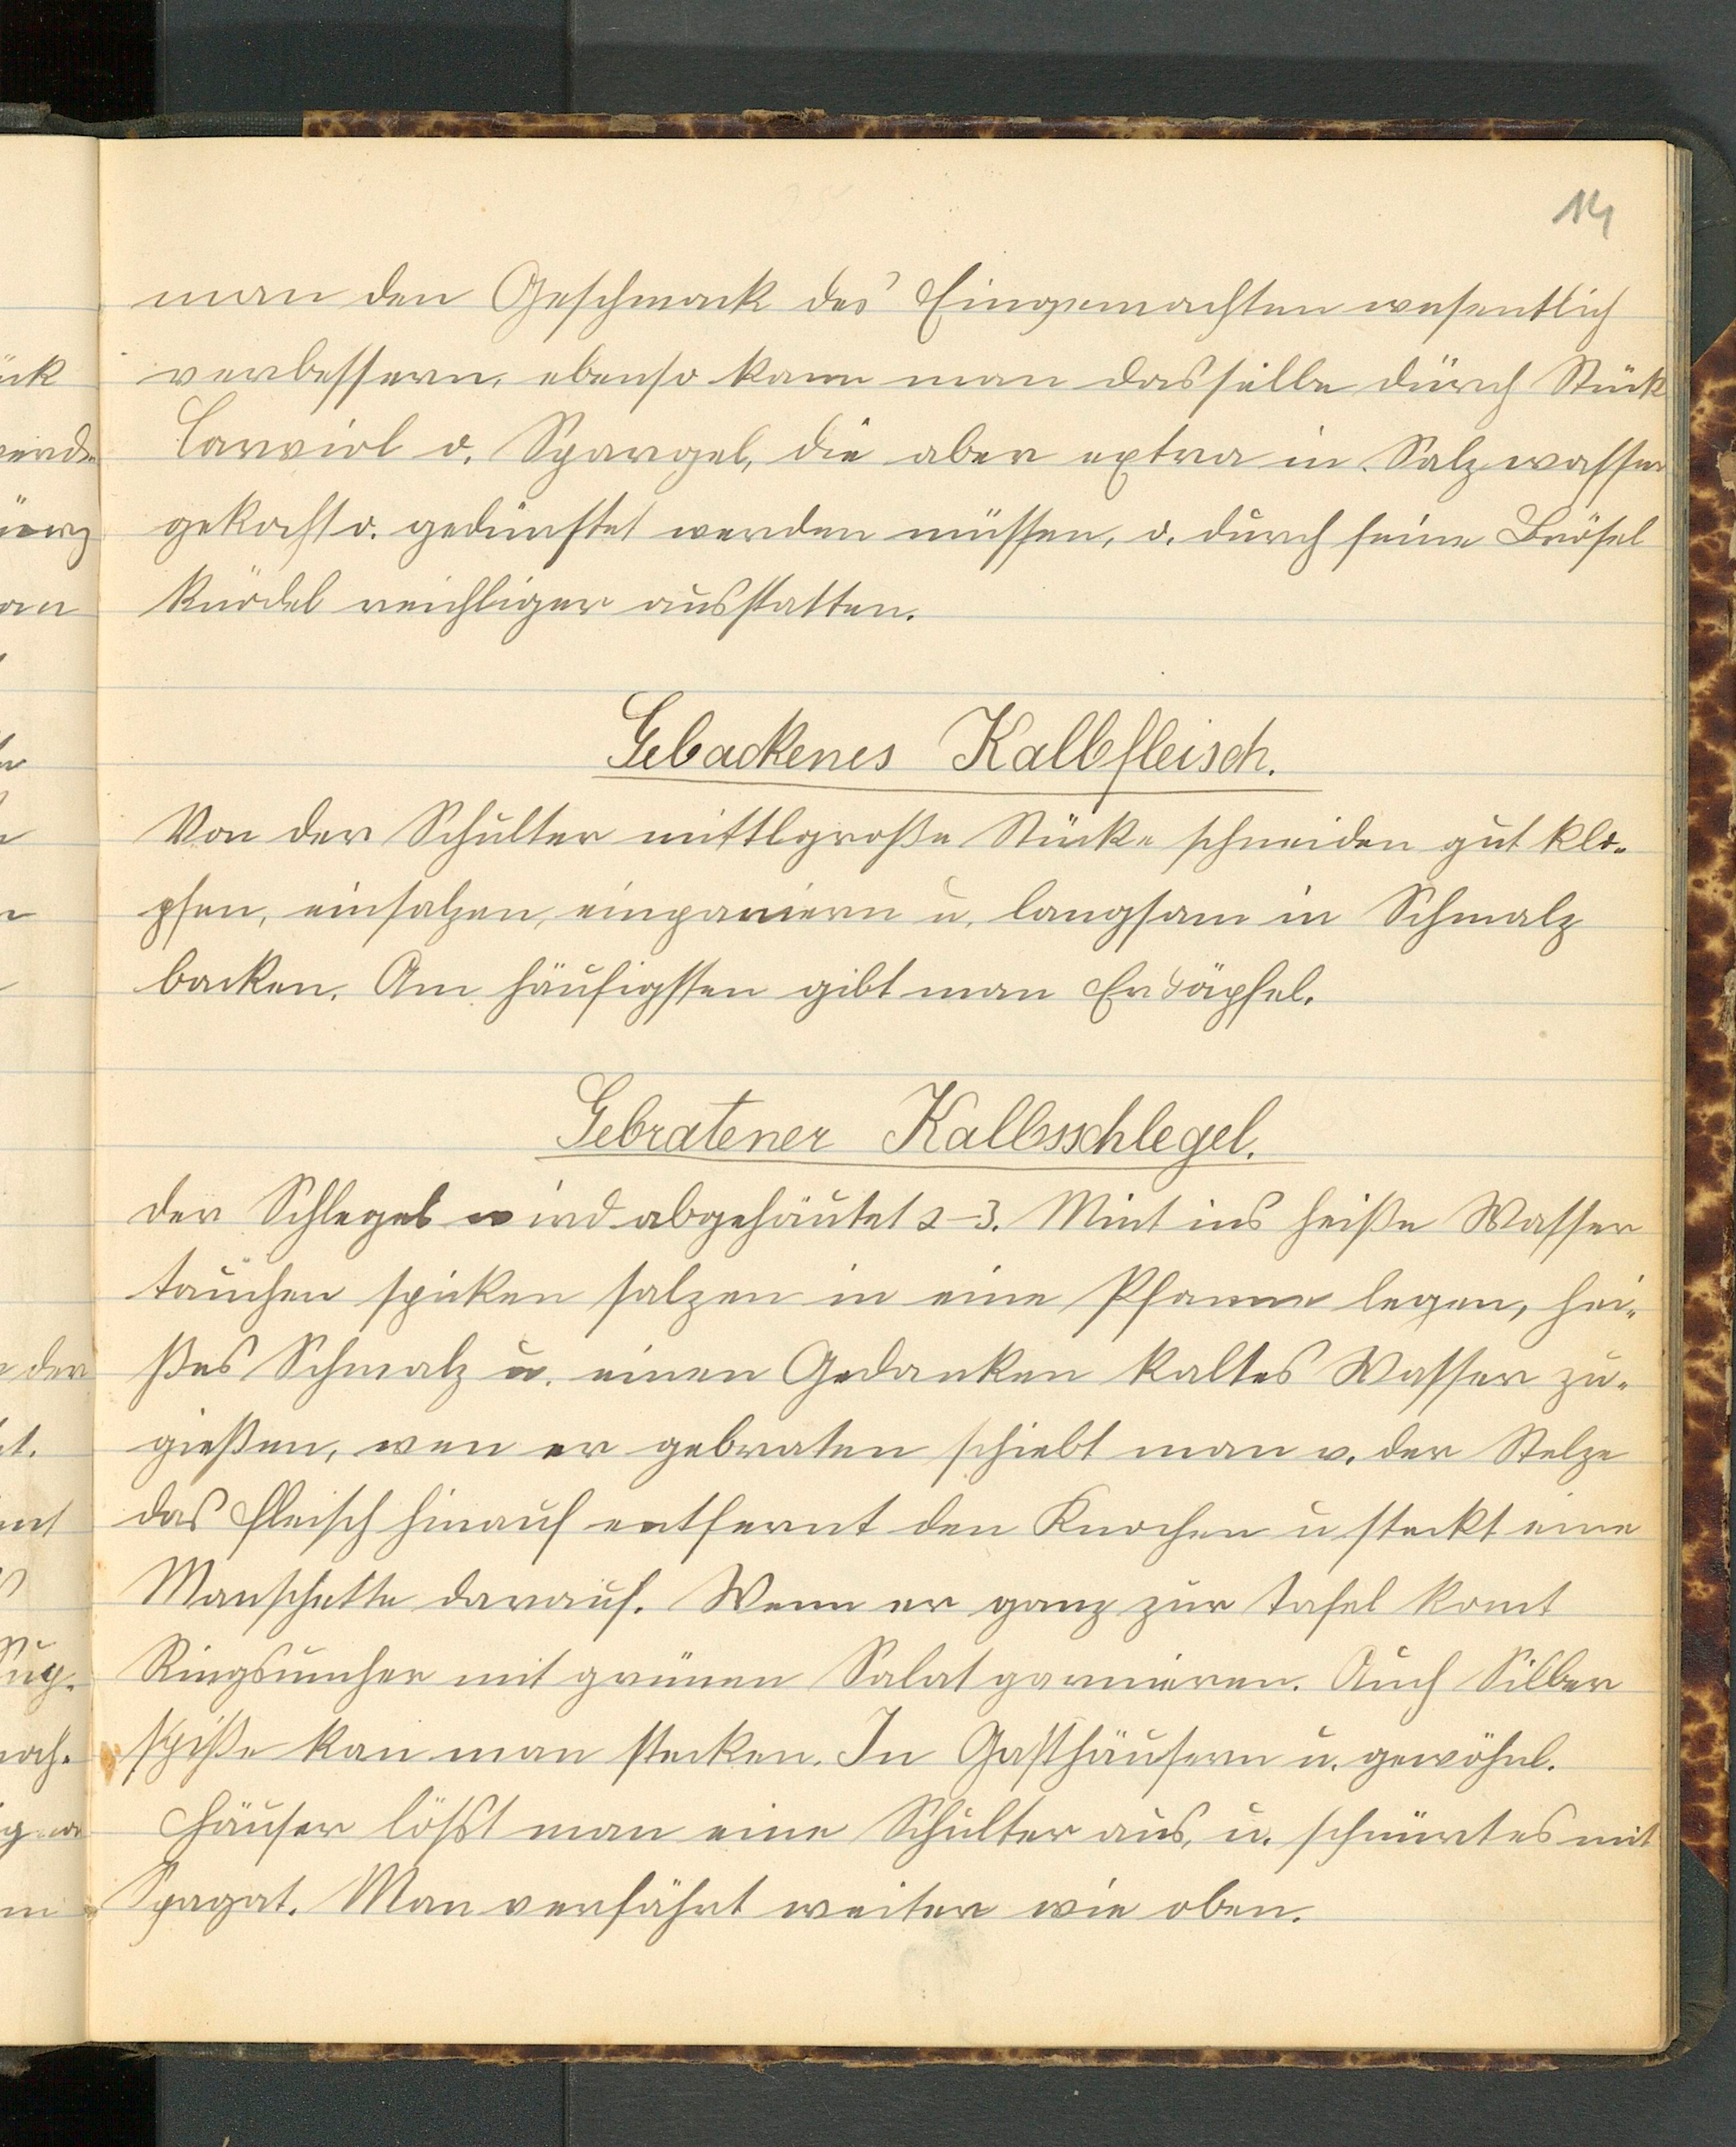 14
man den Geschmack des Eingemachten wesentlich
verbessern, ebenso kann man dasselbe durch Stück
Carviol o. Spargel, die aber extra in Salzwasser
gekocht o. gedünstet werden müssen, o. durch feine Brösel
knödel reichliger ausstatten.
Gebackenes Kalbfleisch.
Von der Schulter mittlgroße Stücke schneiden gut klo-
pfen, einsalzen, einpaniern u. langsam in Schmalz
backen. Am häufigsten gibt man Erdäpfel.
Gebratener Kalbsschlegel.
Der Schlegel wird abgehäutet 2-3. Mint ins heiße Wasser
tauchen spicken salzen in eine Pfanne legen, hei-
ßes Schmalz u. einen Gedanken kaltes Wasser zu-
gießen, wen er gebraten schiebt man v. der Stelze
das Fleisch hinauf entfernt den Knochen u steckt eine
Manschette darauf. Wenn er ganz zur Tafel komt
Ringsumher mit grünen Salat garnieren. Auch Silber
spiße kan man stecken. In Gasthäusern u. gewöhnl.
Häuser lößt man eine Schulter aus, u. schnürt es mit
Spagat. Man verfährt weiter wie oben.